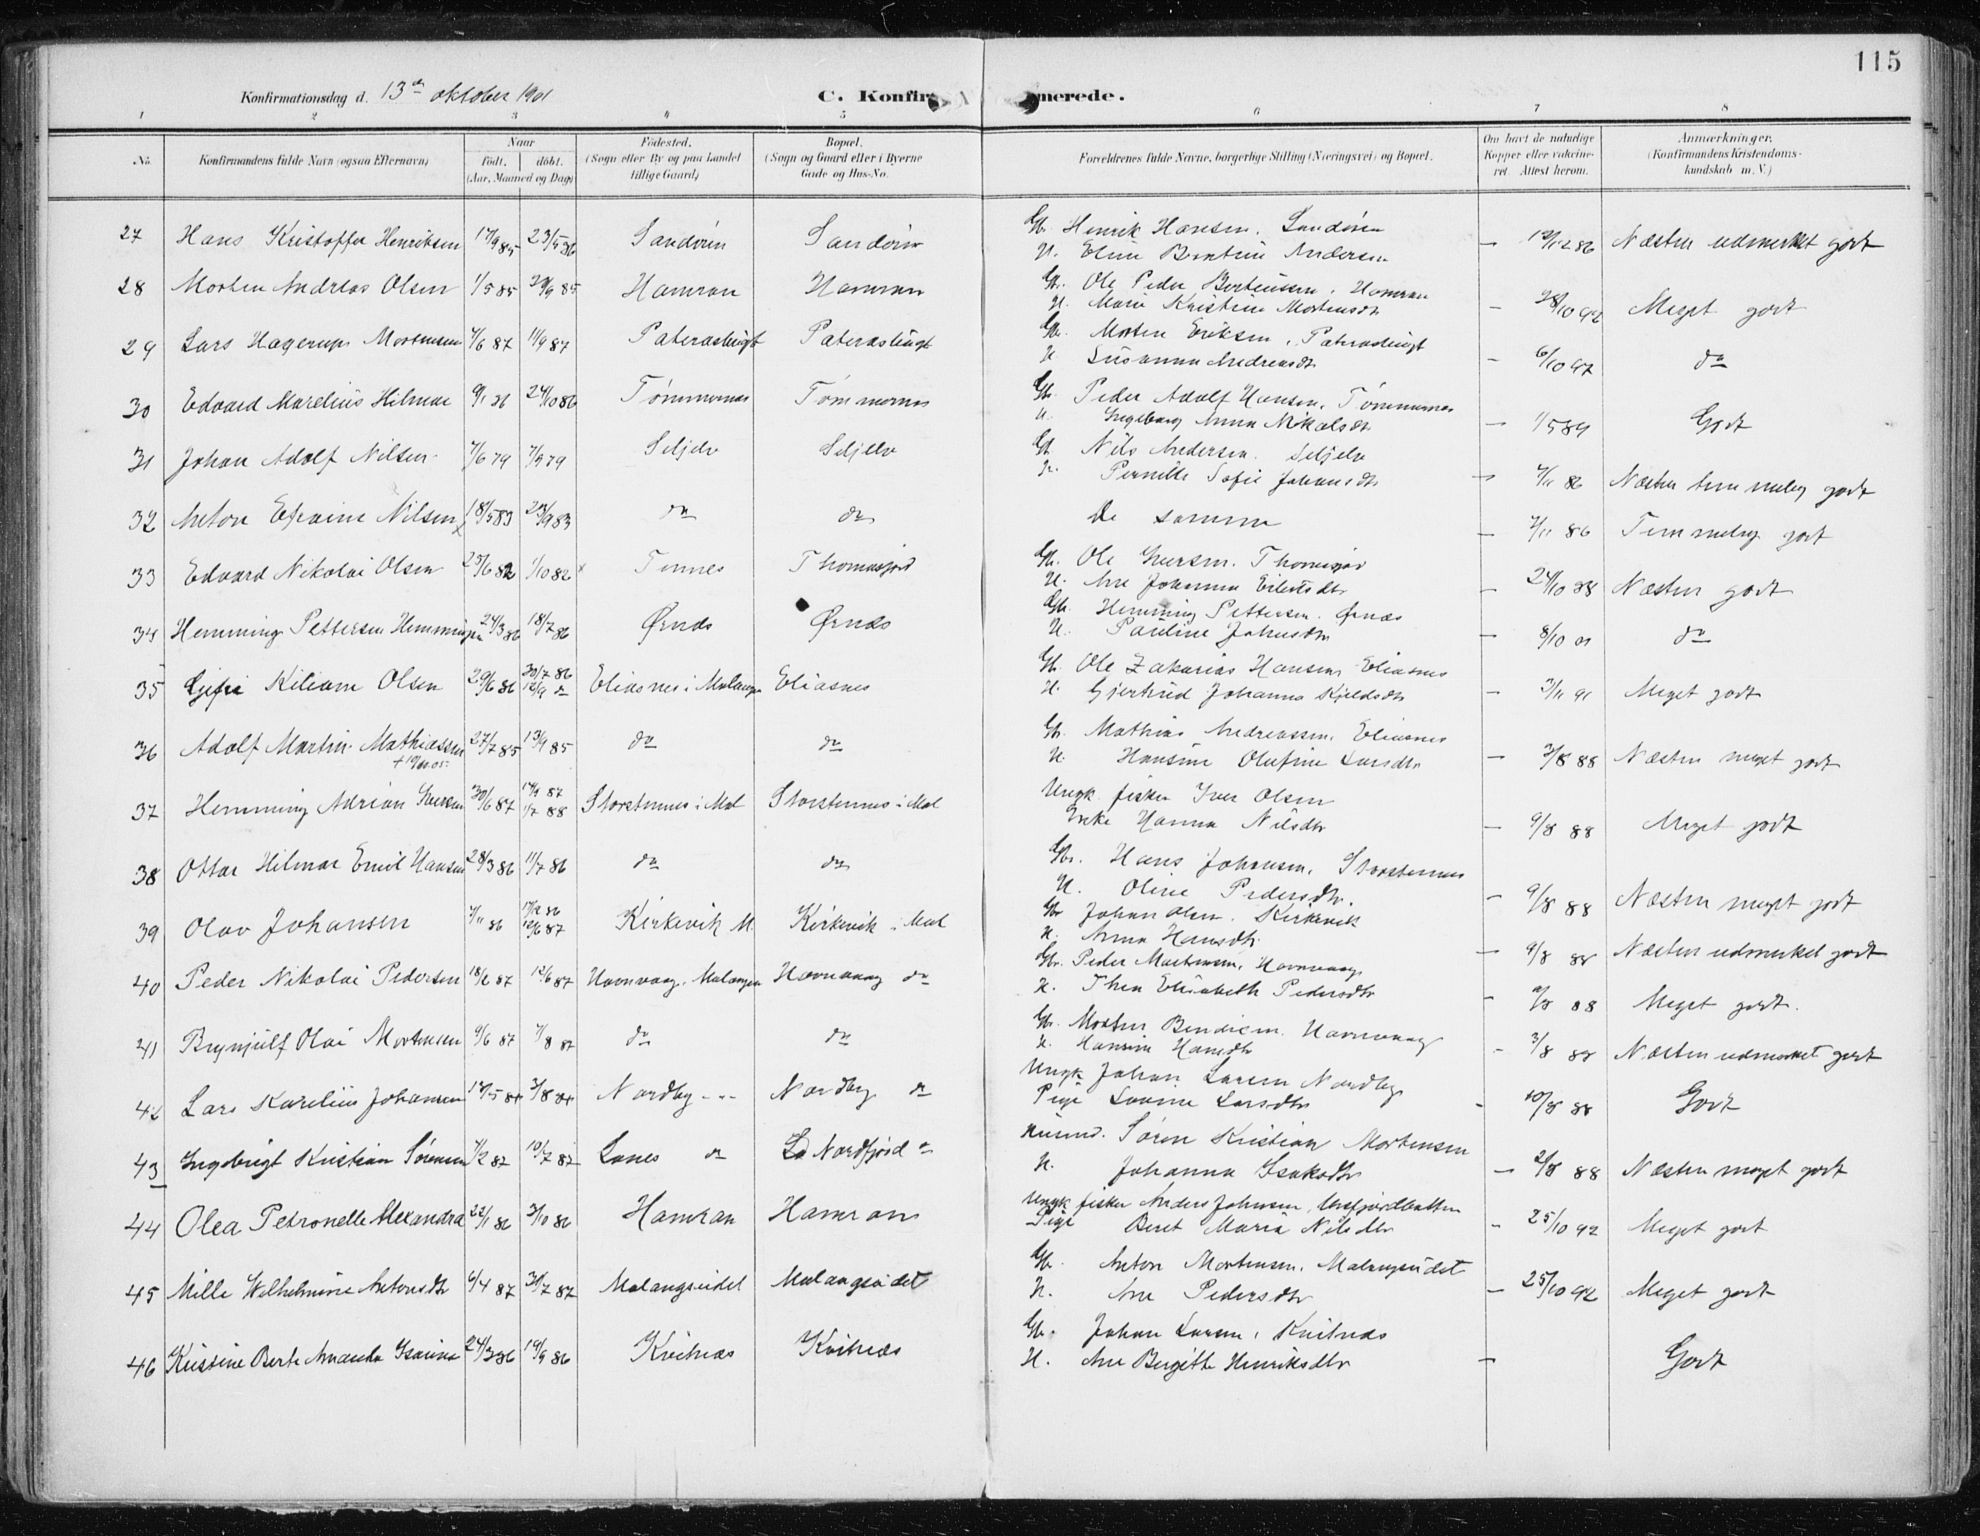 115
Konfirmationsdag d. 13de oktober 1901
C. Konfir merede.
1 2 3 4 5 6 7 8
No. Konfirmandens fulde Navn (ogsaa Efternavn) Naar født. døbt. (Aar, Maaned og Dag) Fødested. (Sogn eller By og paa Landet tillige Gaard) Bopæl. (Sogn og Gaard eller i Byerne Gade og Hus-No. Forældrenes fulde Navne, borgerlige Stilling (Næringsvei) og Bopæl. Om havt de naturlige Kopper eller vakcineret. Attest herom. Anmærkninger. (Konfirmandens Kristendomskundskab m. V.)
27 Hans Kristoffer Henriksen 17/9 85 23/5 86 Sandøren Sandøren Gb. Henrik Hansen, Sandøren — 19/12 86 Næsten udmerket godt
H. Eline Berntine Andersen
28 Morten Andreas Olsen 1/5 85 20/9 85 Hamran Hamran Gb. Ole Peder Berteussen, Hamran — 28/10 92 Meget godt
H. Marie Kristine Mortensdtr
29 Lars Hagerup Mortensen 7/6 87 11/9 87 Pateraslugt Pateraslugt Gb. Morten Eriksen, Pateraslugt — 6/10 92 do
H. Susanna Andreasdtr
30 Edvard Marelius Hilmar 9/1 86 24/10 86 Tømmernes Tømmernes Gb. Peder Adolf Hansen, Tømmernes — 1/5 89 Godt
H. Ingeborg Anna Nikolsdtr
31 Johan Adolf Nilsen 7/6 79 7/9 79 Seljelv Seljelv Gb. Nils Andersen, Seljelv — 7/11 86 Næsten temmelig godt
H. Pernille Sofie Johansdtr
32 Anton Efraim Nilsen 18/5 83 23/9 83 do do De samme — 7/11 86 Temmelig godt
33 Edvard Nikolai Olsen 25/6 82 1/10 82 Tennes Thomasjord Gb. Ole Iversen, Thomasjord — 24/10 88 Næsten godt
H. Ane Johanna Eilertsdtr
34 Hemming Pettersen Hemmingsen 24/3 86 18/7 86 Ørnes Ørnes Gb. Hemming Pettersen, Ørnes — 8/10 01 do
H. Pauline Johnsdtr
35 Kiliam Olsen 29/6 86 30/7 86 12/9 do Eliasnes i Malangen Eliasnes Gb. Ole Zakarias Hansen, Eliasnes — 3/11 91 Meget godt
H. Gjertrud Johanna Kjeldsdtr
36 Adolf Martin Mathiassen 27/7 85 13/9 85 do do Gb. Mathias Andreassen, Eliasnes — 3/8 88 Næsten meget godt
H. Hansine Olufine Larsdtr
37 Hemming Adrian Iversen 30/6 87 17/7 87 1/7 88 Storstennes i Mal Storstennes i Mal Ungk. fisker Iver Olsen — 9/8 88 Meget godt
Enke Hanna Nilsdtr
38 Ottar Hilmar Emil Hansen 28/3 86 11/7 86 do do Gb. Hans Johansen, Storstennes — 9/8 88 Næsten meget godt
H. Oline Pedersdtr.
39 Olav Johansen 7/11 86 17/12 86 12/6 87 Kirkevik M. Kirkevik i Mal Gb. Johan Olsen, Kirkevik — 9/8 88 Næsten udmerket godt
H. Anna Hansdtr
40 Peder Nikolai Pedersen 18/2 87 12/6 87 Havnvaag, Malangen Havnvaag do Gb. Peder Mortensen, Havnvaag — 2/8 88 Meget godt.
H. Thea Elisabeth Pedersdtr
41 Brynjulf Olai Mortensen 9/6 87 7/8 87 do do Gb. Morten Bendixen, Havnvaag — 3/8 88 Næsten udmerket godt
H. Hansine Hansdtr
42 Lars Karelius Johansen 17/5 84 3/8 84 Nordby Nordby do Ungk Johan Larsen Nordby — 10/8 88 Godt
Pige Lovise Larsdtr
43 Ingebrigt Kristian Sørensen 7/2 87 10/7 87 Lanes do Nordfjord do Søren Kristian Mortensen — 2/8 88 Næsten meget godt
H. Johanna Isaksdtr
44 Olea Petronelle Alexandra 22/1 86 3/10 86 Hamran Hamran Ungk fisker Anders Johnsen, — 25/10 92 Meget godt
Pige Beret Maria Nilsdtr
45 Mille Wilhelmine Antonsdtr 6/4 87 30/7 87 Malangseidet Malangseidet Gb. Anton Mortensen, Malangseidet — 25/10 92 Meget godt
H. Ane Pedersdtr
46 Kristine Berte Amanda Isarina 24/3 86 19/9 86 Kvitnes Kvitnes Gb. Johan Larsen, Kvitnes — Godt
H. Ane Bergitte Henriksdtr